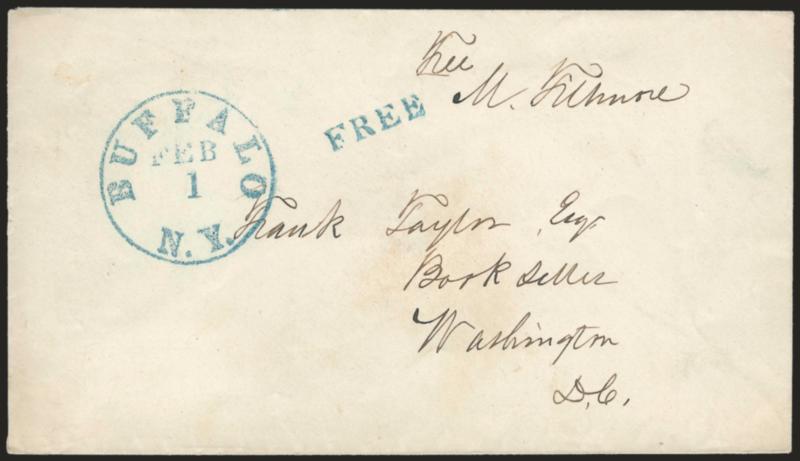 Free
M. Fillmore
FREE
BUFFALO
FEB
1
N.Y.
Frank Taylor, Esqr
Book Seller
Washington
D.C.